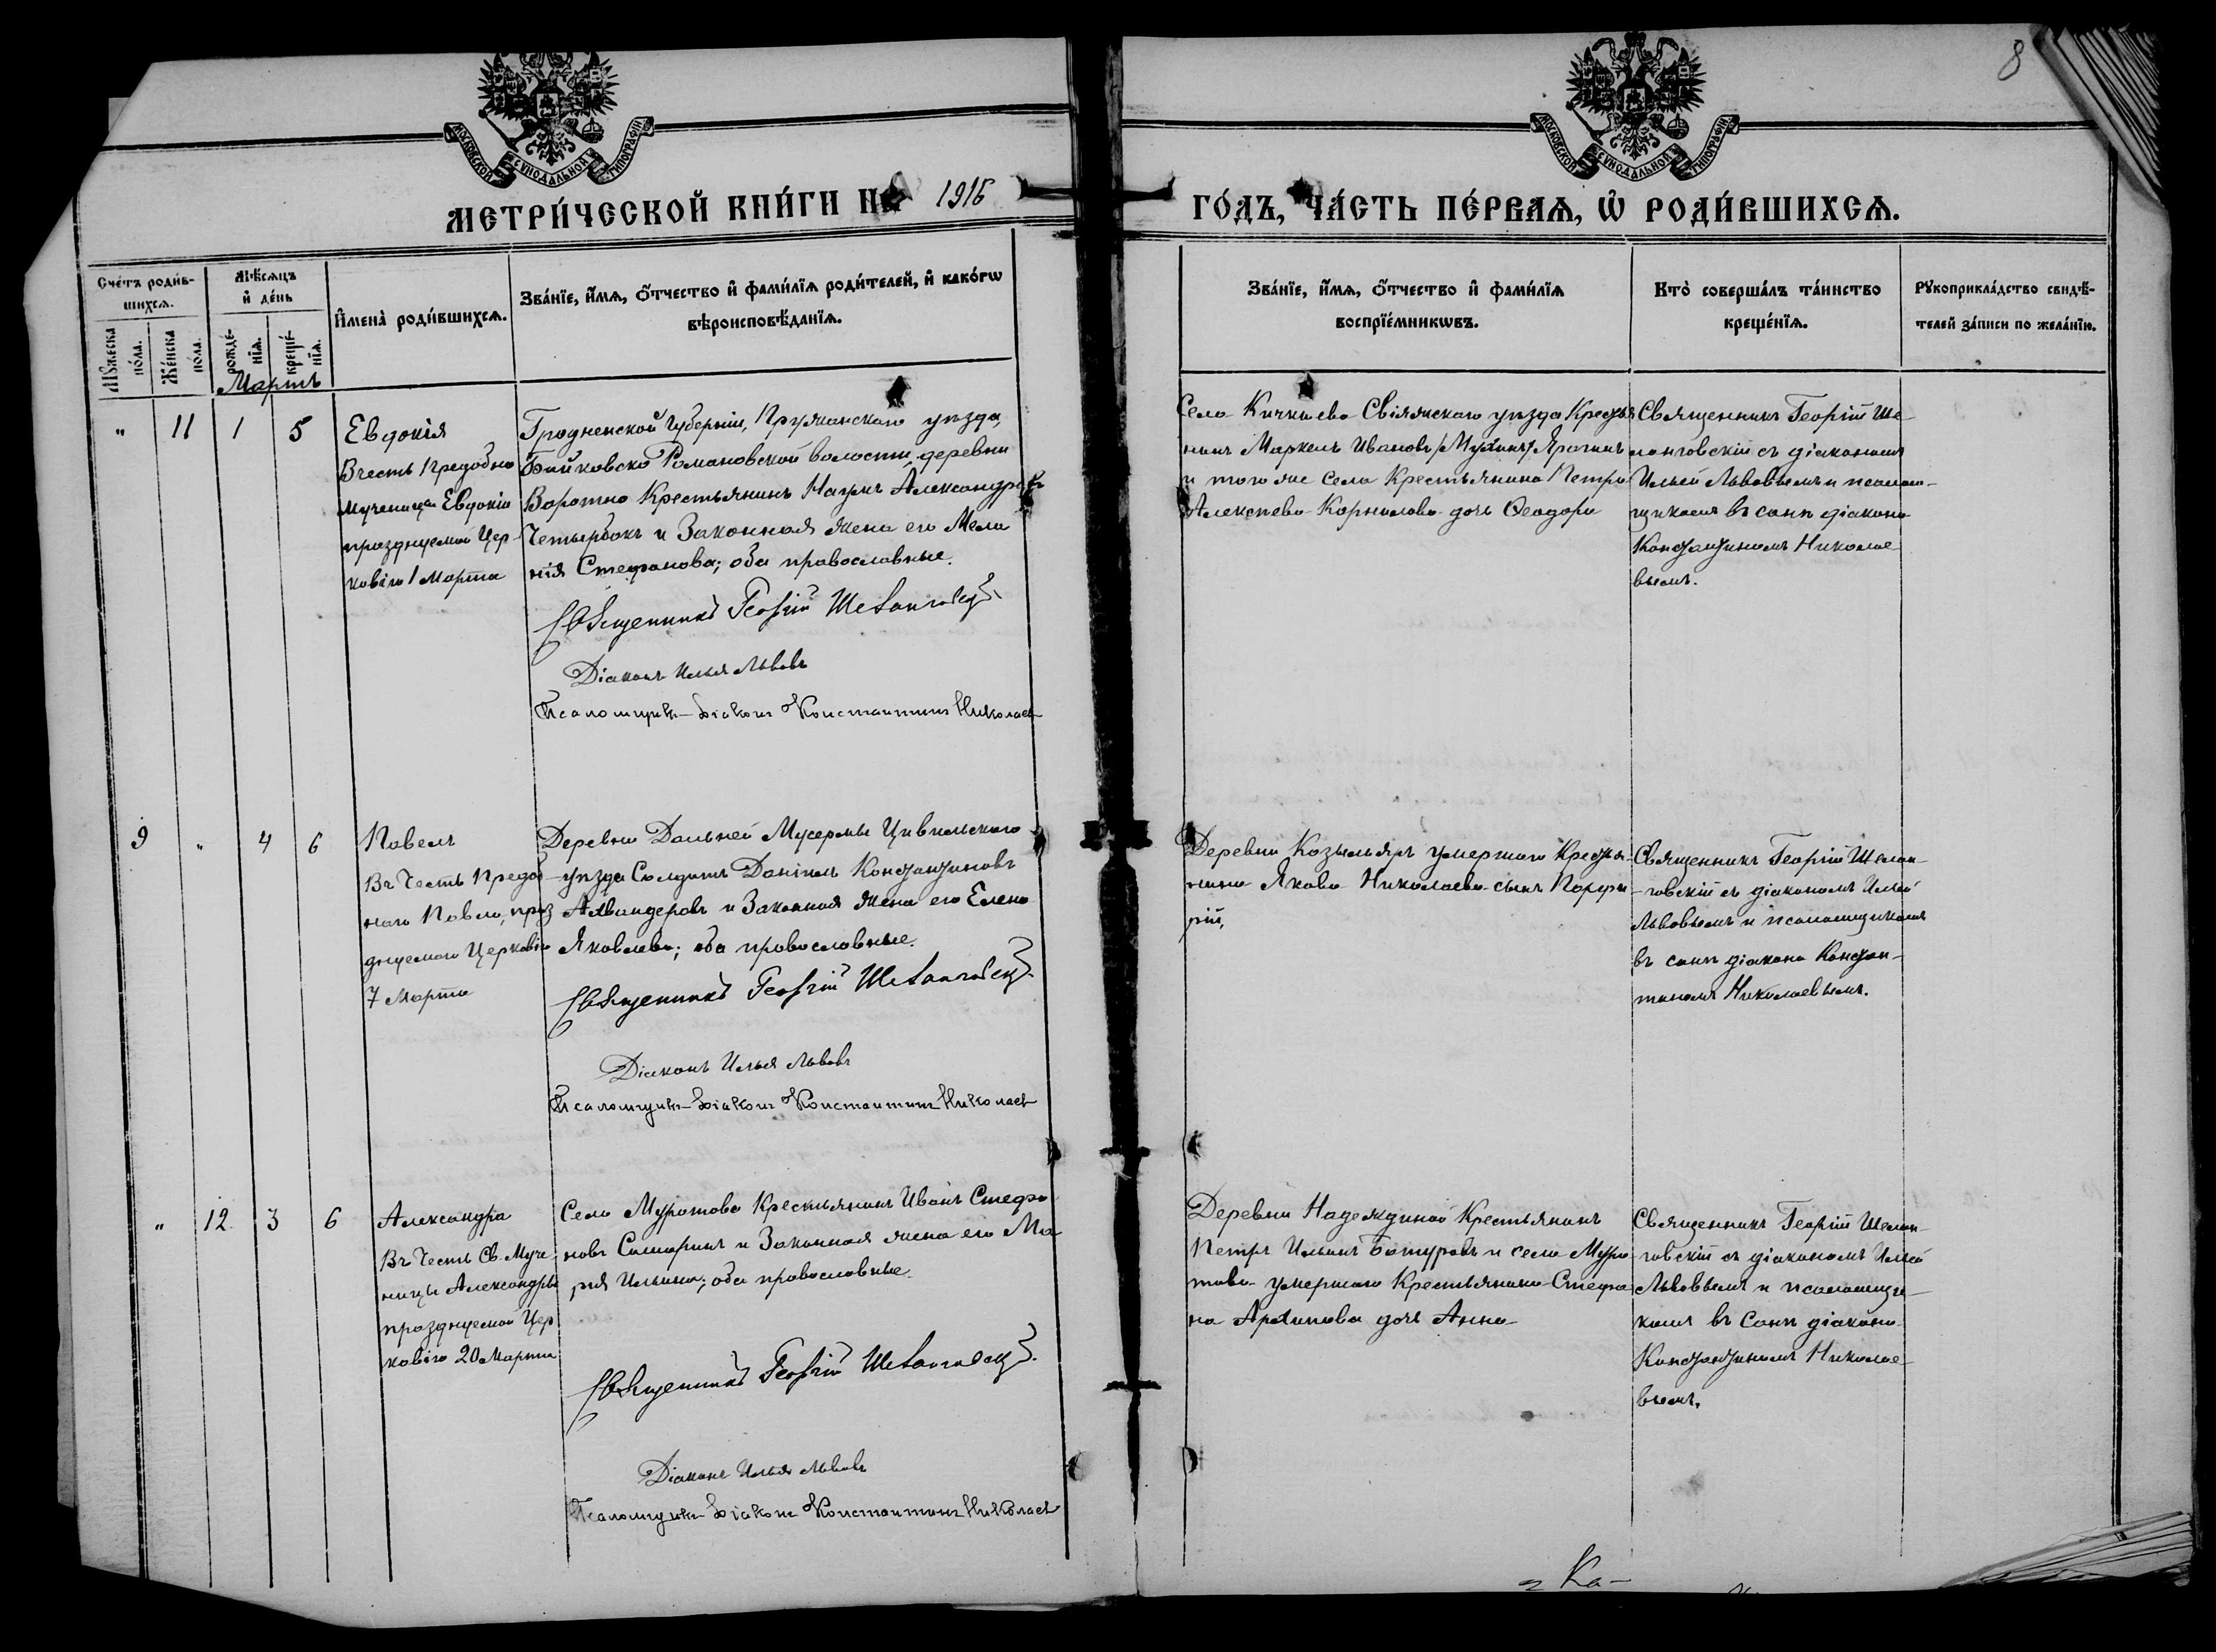 8
МОСКОВСКОЙ СѴНОДАЛЬНОЙ ТИПОГРАФІИ
МОСКОВСКОЙ СѴНОДАЛЬНОЙ ТИПОГРАФІИ
МЕТРИ́ЧЕСКОЙ КНИ́ГИ НА 1916
ГО́ДЪ, ЧА́СТЬ ПЕ́РВАѦ, Ѡ҆ РОДИ́ВШИХСѦ.
Сче́тъ роди́в-
шихсѧ.
Мꙋ́жеска по́ла.
Же́нска по́ла.
Мѣ́сѧцъ
и҆ де́нь
рожде́-
нїѧ.
креще́-
нїѧ.
И҆мена̀ роди́вшихсѧ.
Зва́нїе, и҆́мѧ, ѻ҆́тчество и҆ фами́лїѧ роди́телей, и҆ како́гѡ
вѣроисповѣ́данїѧ.
Зва́нїе, и҆́мѧ, ѻ҆́тчество и҆ фами́лїѧ
воспрїе́мникѡвъ.
Кто̀ соверша́лъ та́инство
креще́нїѧ.
Рꙋкоприкла́дство свидѣ́-
телей за́писи по жела́нїю.
Мартъ
" 11 1 5
Евдокія
В честь преподобно
мученицы Евдокіи
празднуемой Цер-
ковію 1 Марта
Гродненской Губерніи, Пружанскаго уѣзда,
Романовской волости деревни
Воротно Крестьянинъ Наумъ Александровъ
Четырбокъ и Законная жена его Мела
нія Стефанова; оба православные.
Священникъ Георгій Шелонговскій
Діаконъ Илья Львовъ
Псаломщикъ-діаконъ Константинъ Николаевъ
Села Кичкиева Свіяжскаго уѣзда Крестья
нинъ Маркелъ Ивановъ /Мухинъ/ Ярагинъ
и того же села Крестьянина Петра
Алексѣева Корнилова дочь Ѳеодора
Священникъ Георгій Ше
лонговскій съ діакономъ
Ильей Львовымъ и псалом-
щикомъ въ санѣ діакона
Константиномъ Николае
вымъ.
9 " 4 6
Павелъ
Въ Честь Препод
наго Павла, праз
днуемаго Церковію
7 Марта
Деревни Дальней Мусермы Цивильскаго
уѣзда Солдатъ Даніилъ Константиновъ
Алвандеровъ и Законная жена его Елена
Яковлева; оба православные.
Священникъ Георгій Шелонговскій
Діаконъ Илья Львовъ
Псаломщикъ-діаконъ Константинъ Николаевъ
Деревни Козыльяръ умершаго Крестья-
нина Якова Николаева сынъ Порфи
рій,
Священникъ Георгій Шелон-
говскій съ діакономъ Ильей
Львовымъ и псаломщикомъ
въ санѣ діакона Констан-
тиномъ Николаевымъ.
" 12 3 6
Александра
Въ Честь Св. Муче
ницы Александры
празднуемой Цер
ковію 20 Марта
Села Муратова Крестьянинъ Иванъ Стефа
новъ Самаринъ и Законная жена его Ма
рія Ильина; оба православные.
Священникъ Георгій Шелонговскій
Діаконъ Илья Львовъ
Псаломщикъ-діаконъ Константинъ Николаевъ
Деревни Надеждиной Крестьянинъ
Петръ Ильинъ Батуровъ и села Мура
това умершаго Крестьянина Стефа
на Архипова дочь Анна
Священникъ Георгій Шелон-
говскій съ діакономъ Ильей
Львовымъ и псаломщи-
комъ въ Санѣ діакона
Константиномъ Николае
вымъ.
Ка-